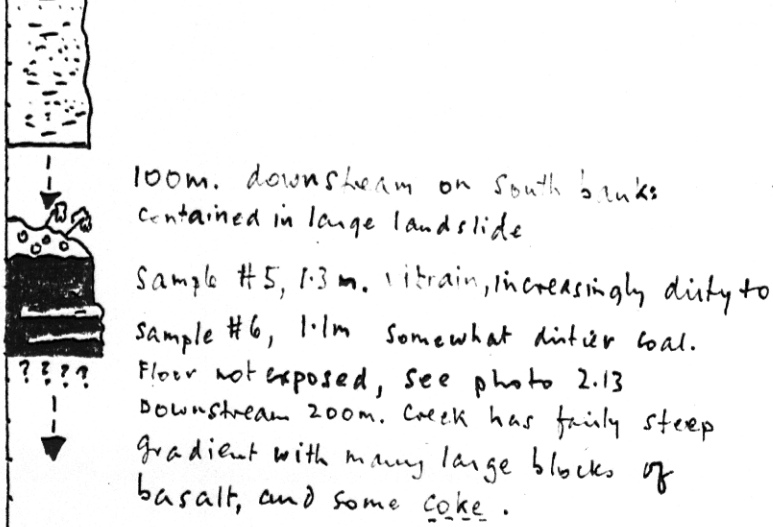 100m. downstream on South banks
contained in large landslide
Sample #5, 1.3 m. vitrain, increasingly dirty to
Sample #6, 1.1m somewhat dirtier coal.
? ? ? ? Floor not exposed, see photo 2.13
Downstream 200m. Creek has fairly steep
gradient with many large blocks of
basalt, and some coke.